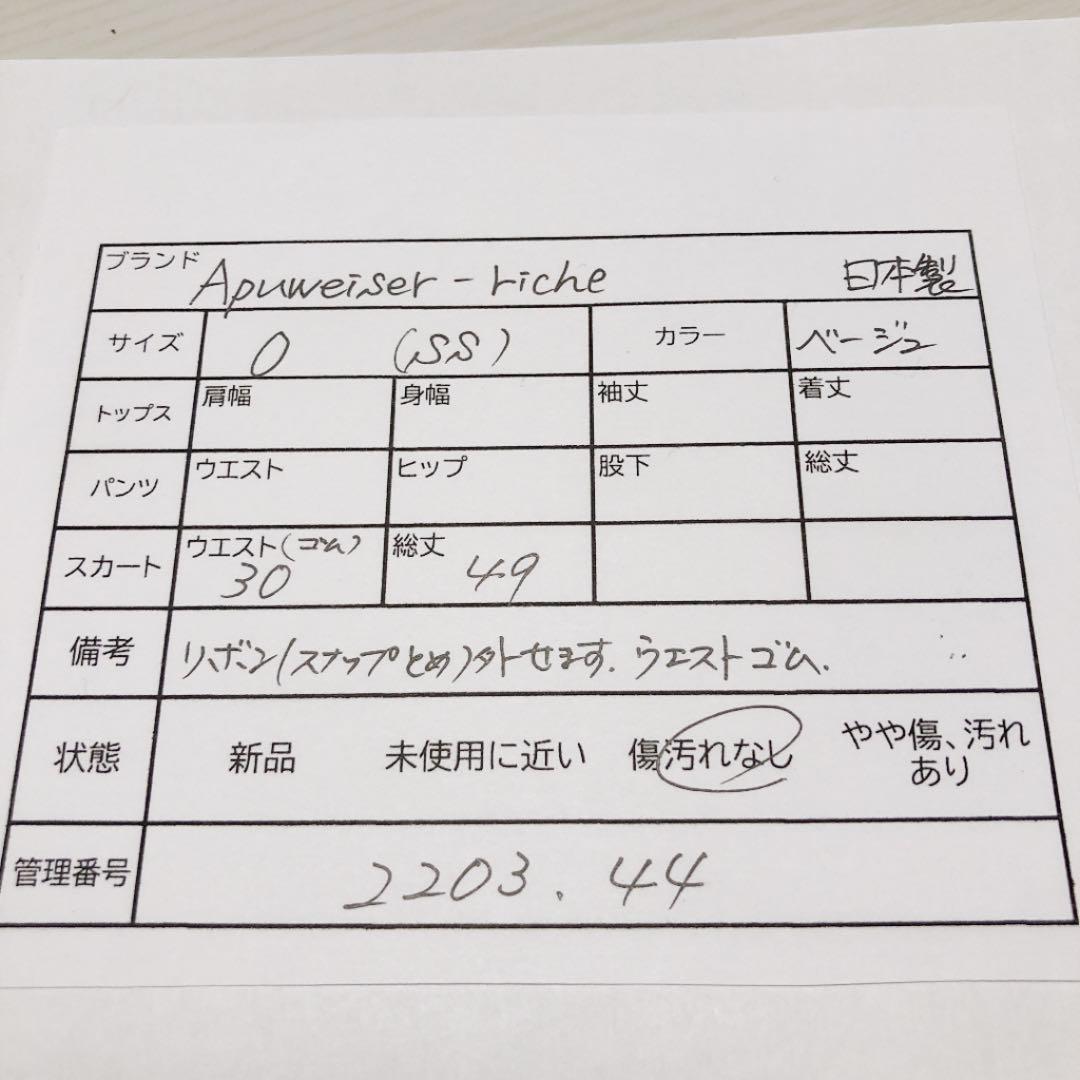 ブランド Apuweiser-riche 日本製
サイズ 0 (SS) カラー ベージュ
トップス 肩幅 身幅 袖丈 着丈
パンツ ウエスト ヒップ 股下 総丈
スカート ウエスト(ゴム) 30 総丈 49
備考 リボン(スナップとめ)外せます. ウエストゴム.
状態 新品 未使用に近い 傷汚れなし やや傷、汚れ
あり
管理番号 2203.44